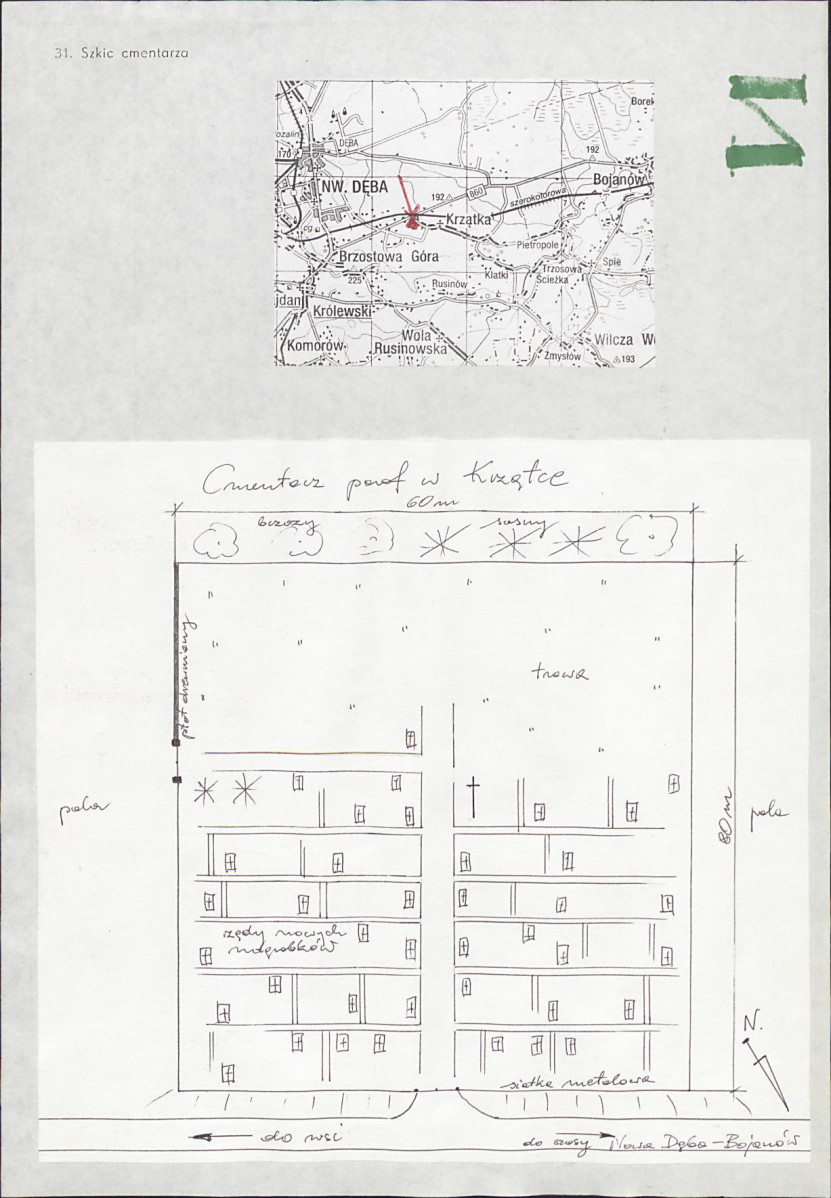 31. Szkic cmentarza
Borek
DĘBA
170
192
NW. DĘBA
192
860
szerokotorowa
Bojanów
Krzątka
Pietropole
Brzostowa Góra
225
Klatki
Trzosowa
Ścieżka
Spie
Rusinów
jdan
Królewski
Komorów
Wola
Rusinowska
Zmysłów
Wilcza W
193
Cmentarz paraf w Krzątce
60 m
brzozy
sosny
płot drewniany
trawa
pola
80 m
pola
rzędy nowych
nagrobków
N.
siatka metalowa
do wsi
do szosy Nowa Dęba - Bojanów